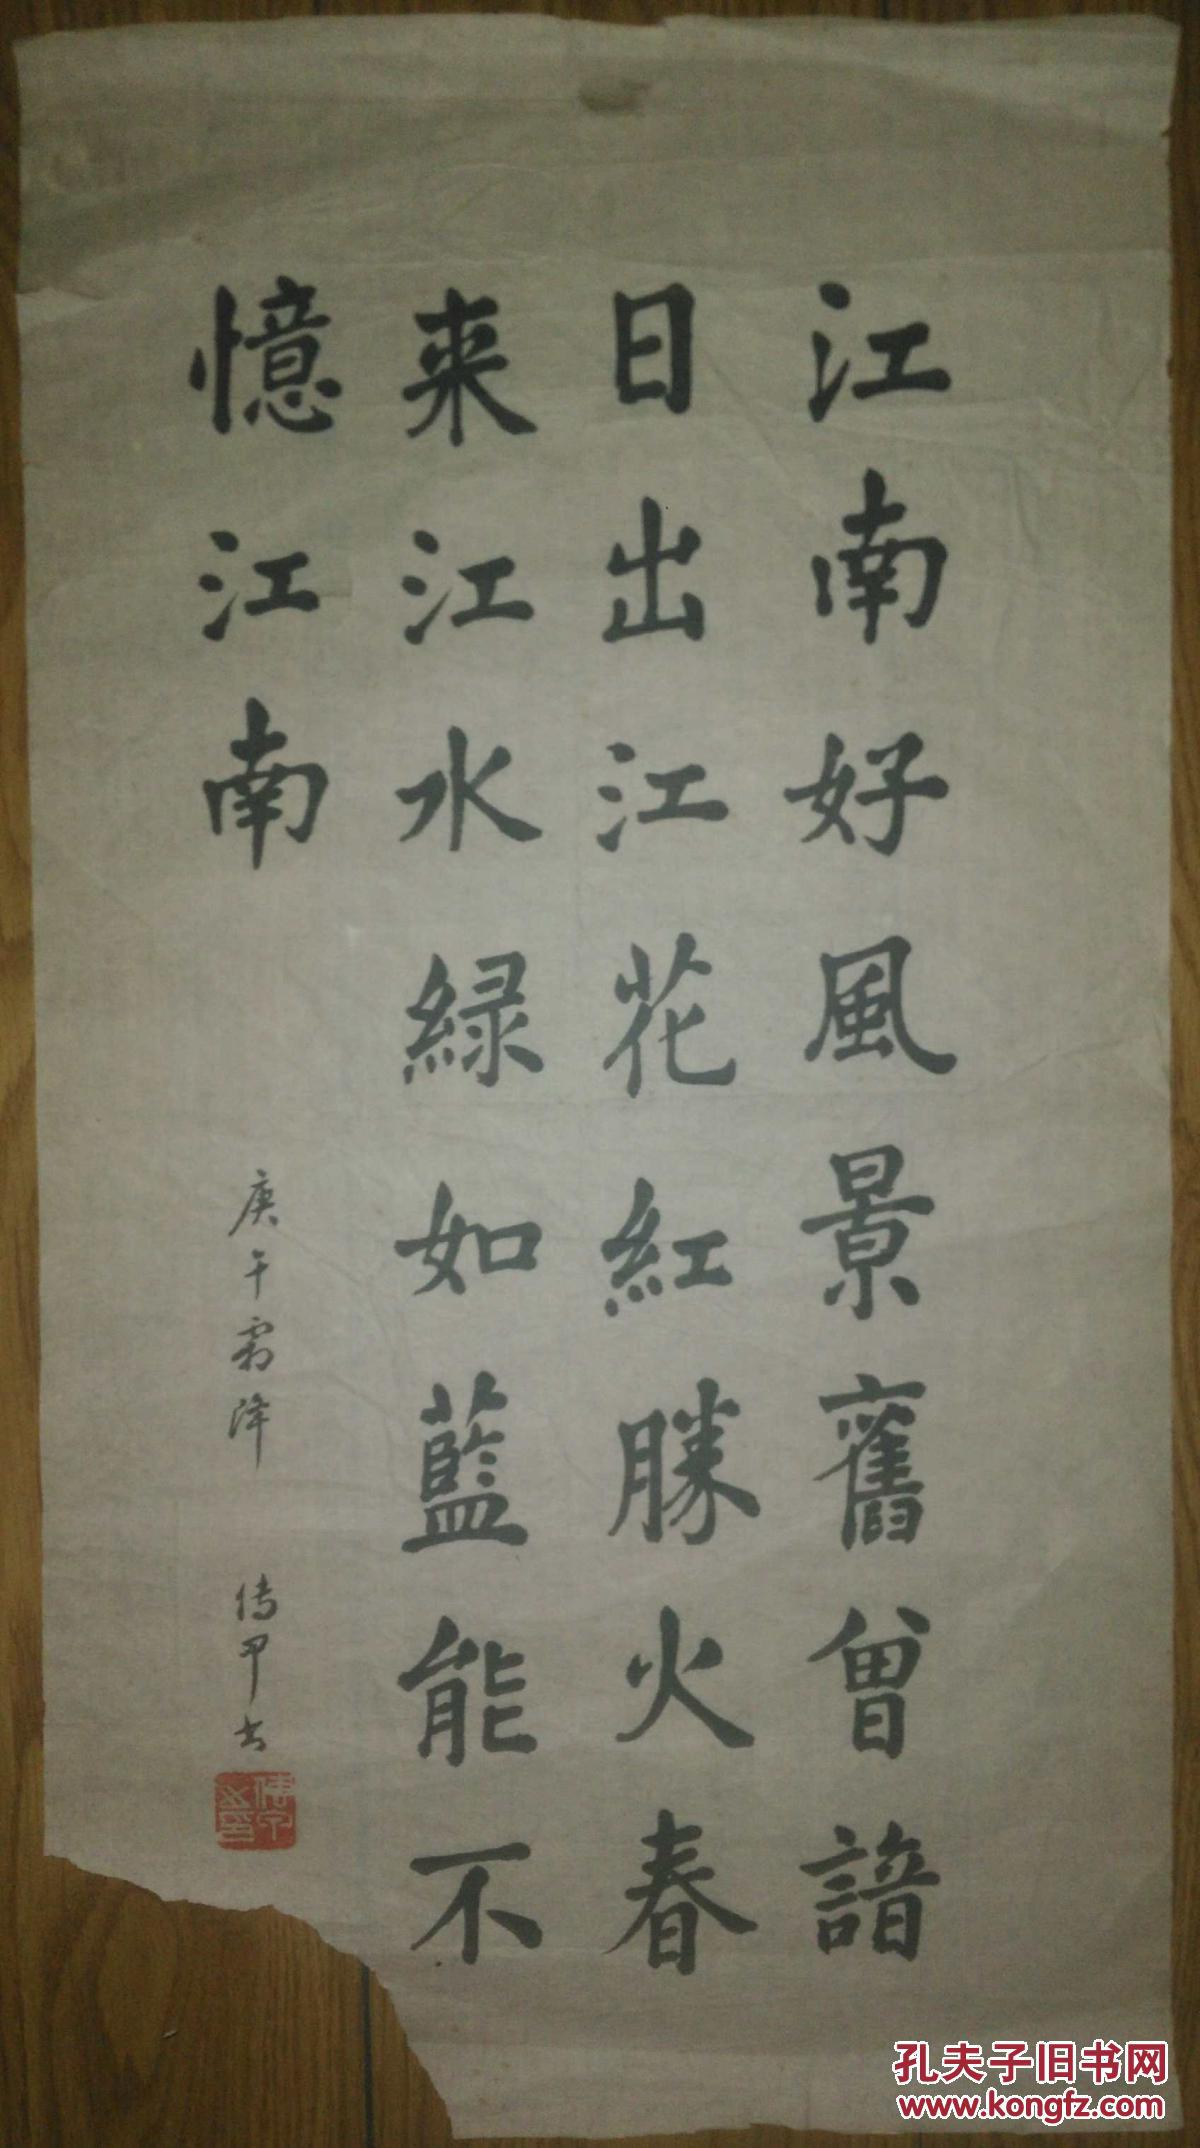 江南好風景舊曾諳
日出江花紅勝火春
来江水緑如藍能不
憶江南
庚午霜降 傳甲书
孔夫子旧书网
www.kongfz.com